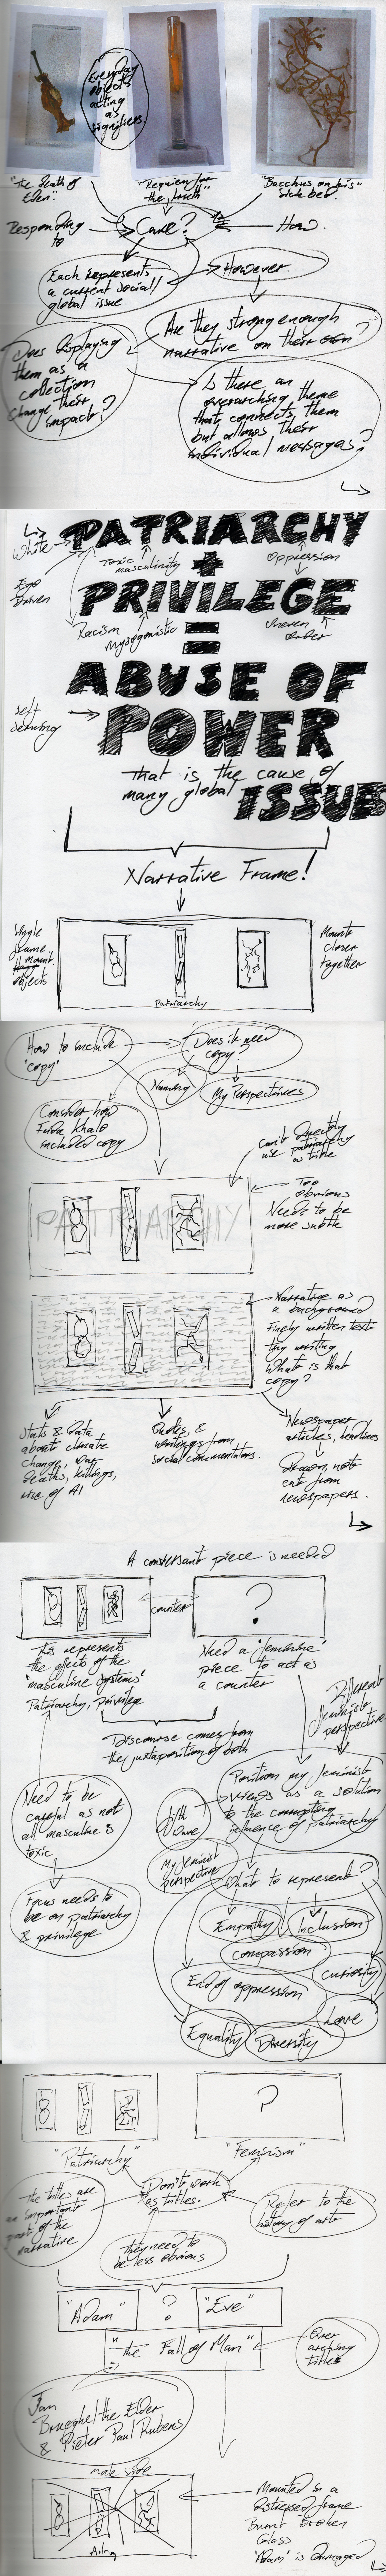 Everyday
objects
acting
as
signifiers.
"The death of
Eden".
"Requiem for
the truth"
"Bacchus on his"
sick bed.
Responding
to
Cause?
How.
Each represents
a current social/
global issue
However...
Are they strong enough
narrative on their own?
Does displaying
them as a
collection
change their
impact?
Is there an
overarching theme
that connects them
but allows their
individual messages?
PATRIARCHY
White
Toxic
masculinity
+
Oppression
Ego
Driven
PRIVILEGE
Racism
Mysogonistic
=
Uneven
order
ABUSE OF
self
serving
POWER
that is the cause of
many global ISSUES
Narrative Frame!
Single
frame
mount
objects
Mount
closer
together
Patriarchy
How to include
'copy'
Does it need
copy?
Memory
My Perspectives
Consider how
Frida Khalo
included copy
Can't directly
use patriarchy
as title
PATRIARCHY
Too
obvious
Needs to be
more subtle
Narrative as
a background
Finely written text
tiny writing
What is that
copy?
Stats & data
about climate
change, war
deaths, killings,
rise of AI
Quotes, &
writings from
social commentators.
Newspaper
articles, headlines
Drawn, not
cut from
newspapers.
A conversant piece is needed
counter
?
This represents
the effects of the
"masculine systems"
Patriarchy, privilege
Need a "feminine"
piece to act as
a counter
Different
feminist
perspectives
Discourse comes from
the juxtaposition of both
Need to be
careful as not
all masculine is
toxic
Position my feminist
views as a solution
to the corrupting
influence of patriarchy
My feminist
perspective
What to represent?
Focus needs to
be on patriarchy
& privilege
Empathy
Inclusion
Compassion
Curiosity
End of oppression
Love
Equality
Diversity
?
"Patriarchy"
"Feminism"
The titles are
an important
part of the
narrative
Don't work
as titles.
Refer to the
history of art
They need to
be less obvious
"Adam"
?
"Eve"
"The Fall of Man"
Over
arching
title
Jan
Brueghel the Elder
& Pieter Paul Rubens
male side
Adam
Mounted in a
distressed frame
Burnt Broken
Glass
'Adam' is Damaged